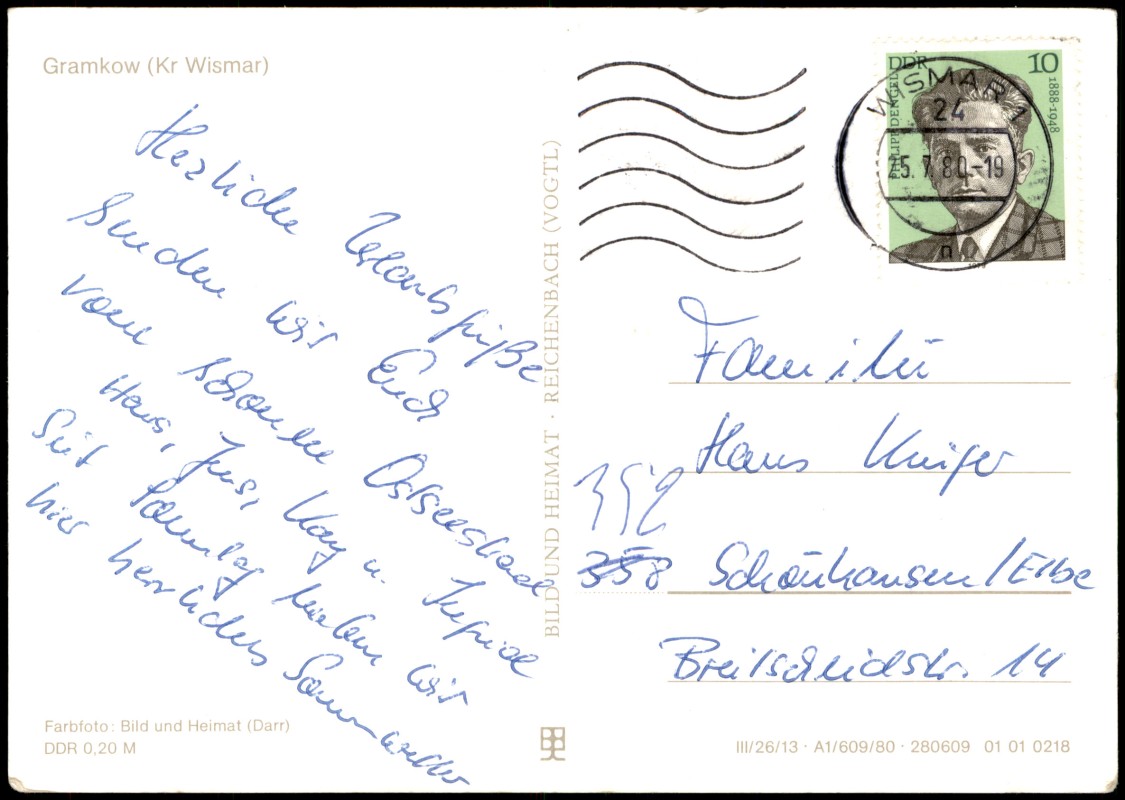 Gramkow (Kr Wismar)
Herzliche Urlaubsgrüße
senden wir Euch
vom schönen Ostseestrand
Hans, Jens, Kay u. Ingrid
Seit Sonntag haben wir
hier herrliches Sommerwetter
Farbfoto: Bild und Heimat (Darr)
DDR 0,20 M
BILD UND HEIMAT · REICHENBACH (VOGTL)
DDR 10
PHILIPP DENGEL
1888-1948
WISMAR 1
24
5.7.80.-19
Familie
Hans Krüger
352
358 Schönhausen/Elbe
Breitscheidstr. 14
III/26/13 · A1/609/80 · 280609 01 01 0218